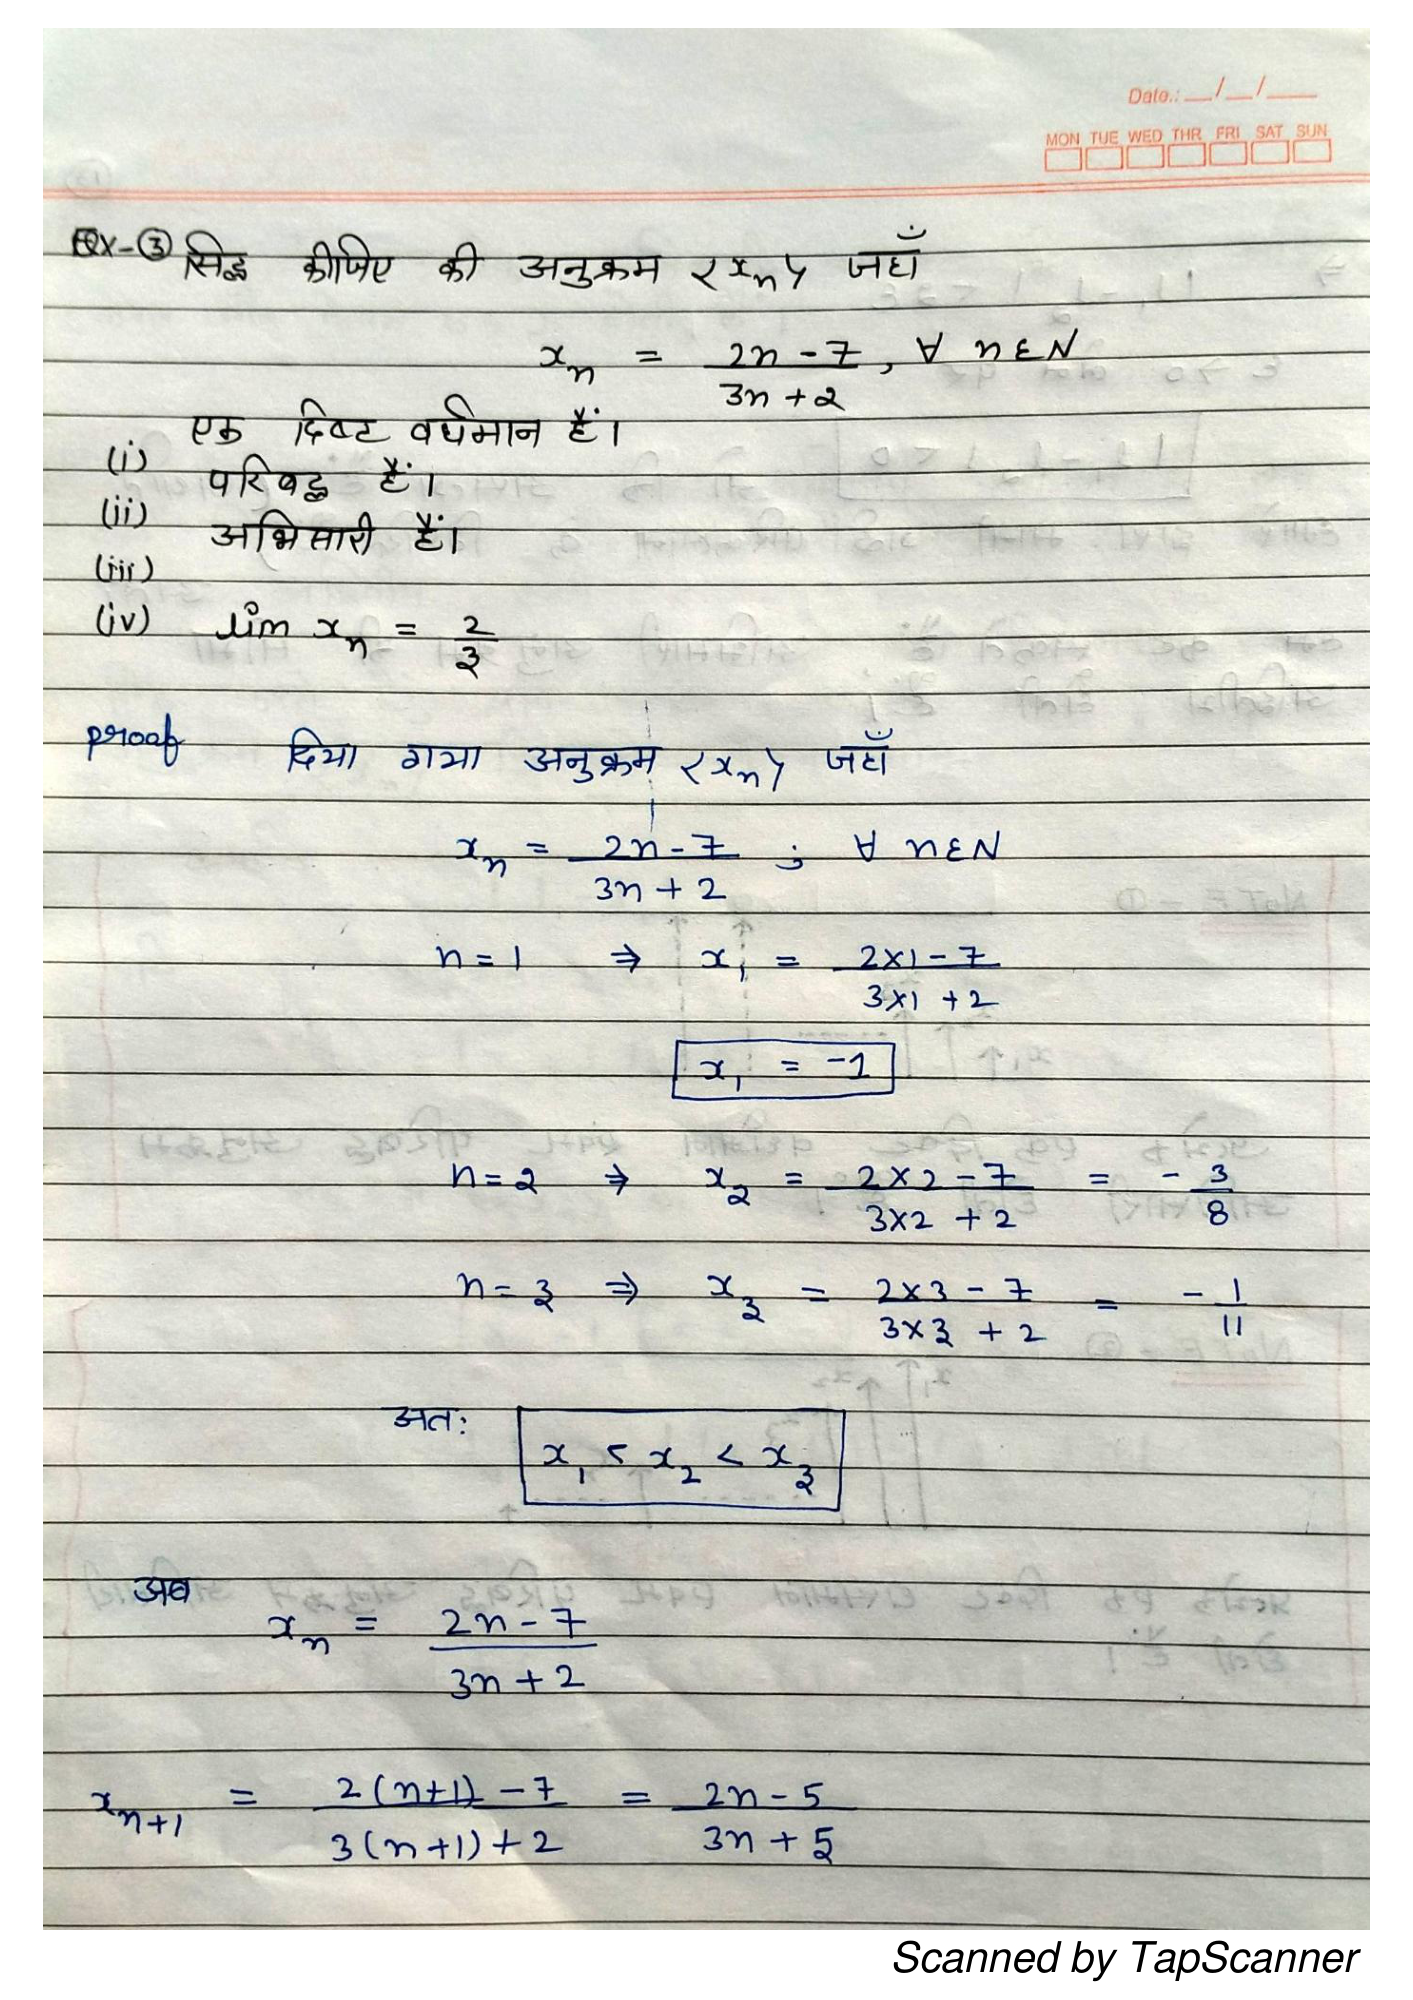 Date.: __/__/___
MON TUE WED THR FRI SAT SUN
Ex-③ सिद्ध कीजिए की अनुक्रम <xₙ> जहाँ
xₙ = (2n-7)/(3n+2), ∀ n∈N
(i) एक दिष्ट वर्धमान हैं।
(ii) परिबद्ध हैं।
(iii) अभिसारी हैं।
(iv) lim xₙ = 2/3
proof दिया गया अनुक्रम <xₙ> जहाँ
xₙ = (2n-7)/(3n+2) ; ∀ n∈N
n=1 ⇒ x₁ = (2×1-7)/(3×1+2)
x₁ = -1
n=2 ⇒ x₂ = (2×2-7)/(3×2+2) = -3/8
n=3 ⇒ x₃ = (2×3-7)/(3×3+2) = -1/11
अत: x₁ < x₂ < x₃
अब
xₙ = (2n-7)/(3n+2)
xₙ₊₁ = (2(n+1)-7)/(3(n+1)+2) = (2n-5)/(3n+5)
Scanned by TapScanner